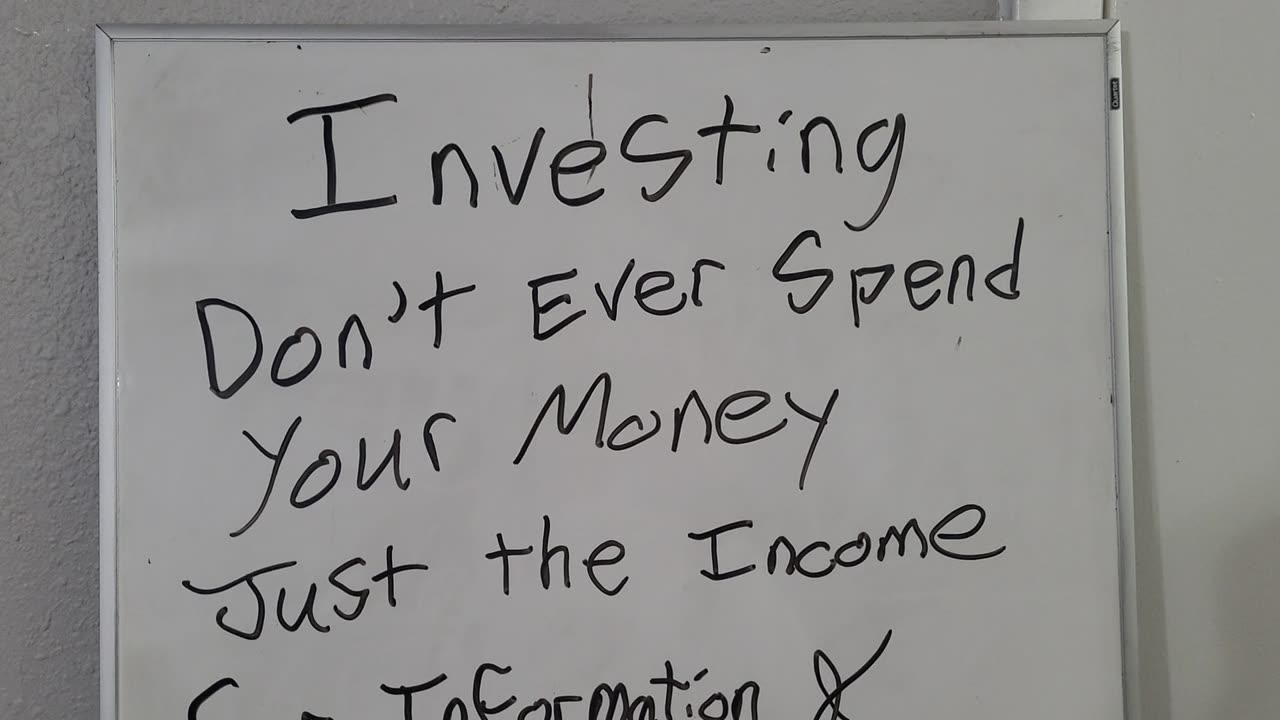 Investing
Don't Ever Spend
Your Money
Just the Income
Information &
Quartet